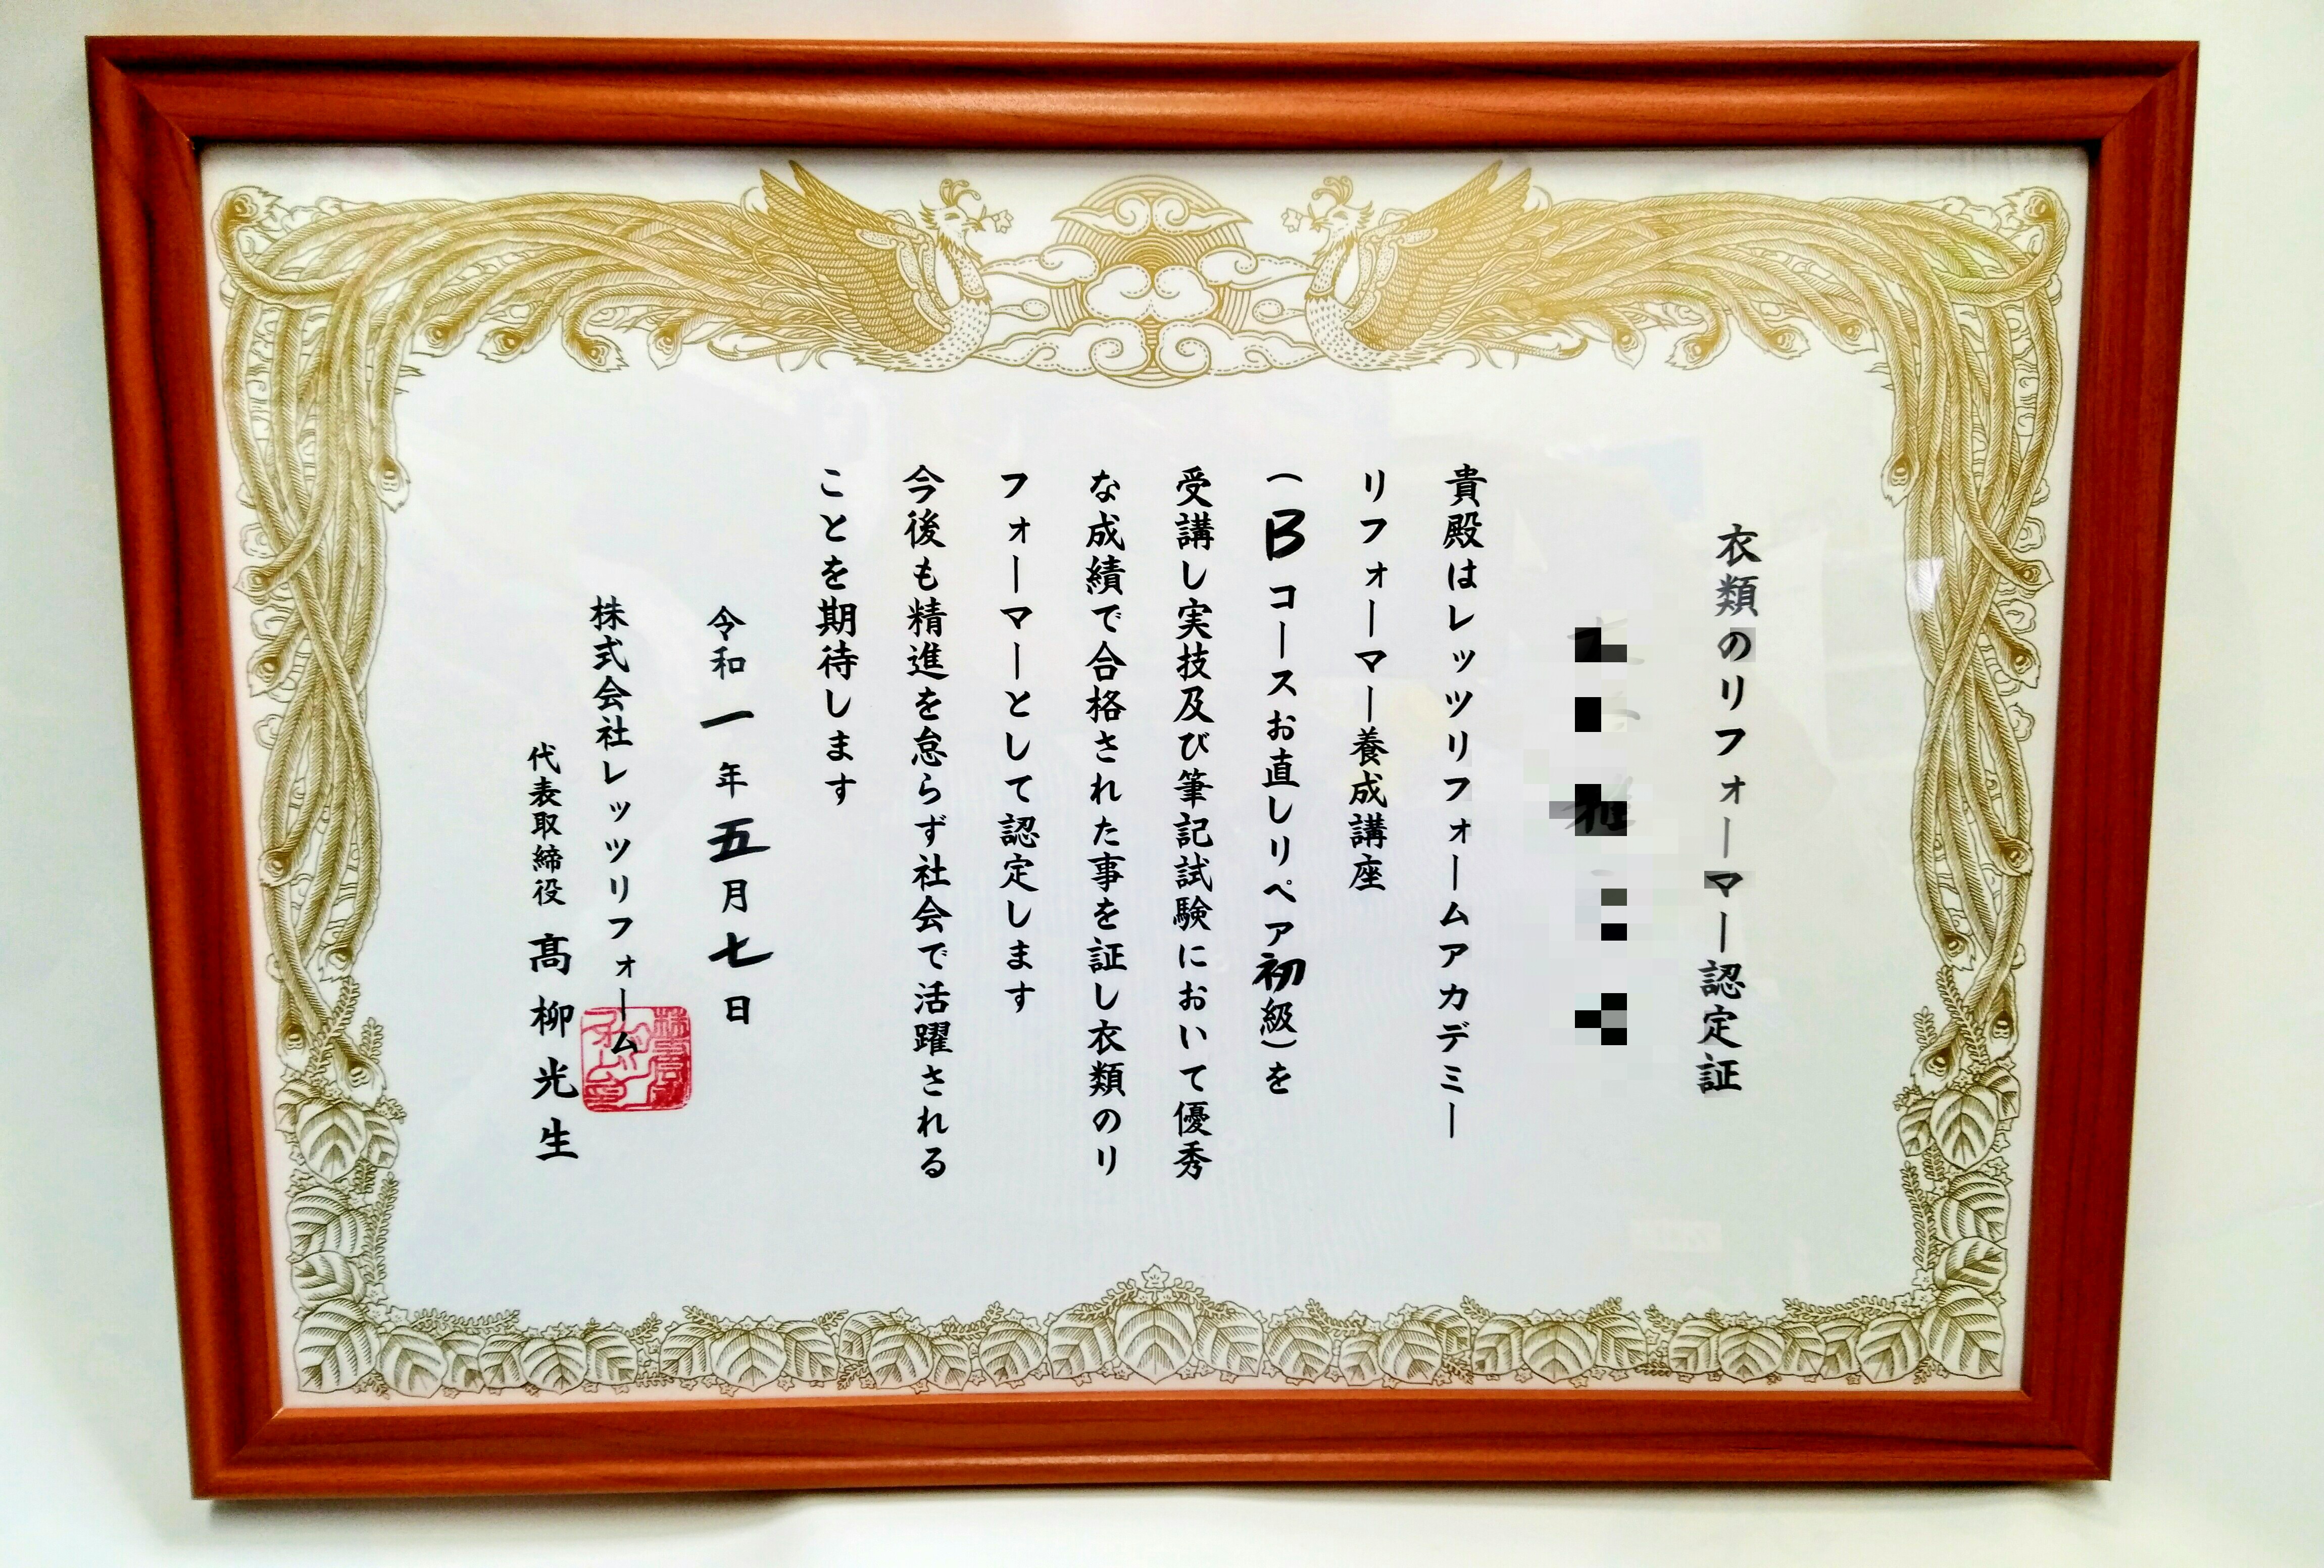 衣類のリフォーマー認定証
貴殿はレッツリフォームアカデミー
リフォーマー養成講座
(Bコースお直しリペア初級)を
受講し実技及び筆記試験において優秀
な成績で合格された事を証し衣類のリ
フォーマーとして認定します
今後も精進を怠らず社会で活躍される
ことを期待します
令和一年五月七日
株式会社レッツリフォーム
代表取締役 髙柳光生